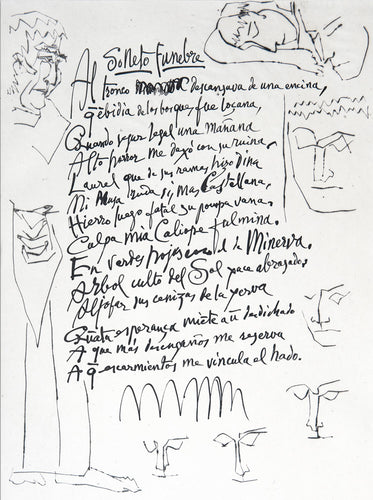 Soneto Funebre
Al tronco descansava de una encina,
q̄ ebidia de los bosques fue loçana,
Quando segur legal una mañana
Alto horror me dexó con su ruina,
Laurel que de sus ramas hizo dina
Mi lira, ruda si, mas Castellana,
Hierro luego fatal su pompa vana,
Culpa tua Caliope fulmina.
En verdes hojas cano el de Minerva.
Arbol culto del Sol yace abrasado,
Aljofar sus cenizas de la yerva
Quāta esperança miēte a ū desdichado
A que más desengaños me reserva
A q̄ escarmientos me vincula el hado.